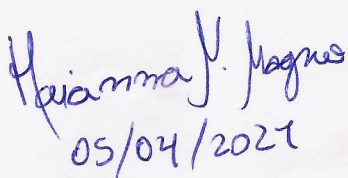 Marianna M. Magnus
05/04/2021